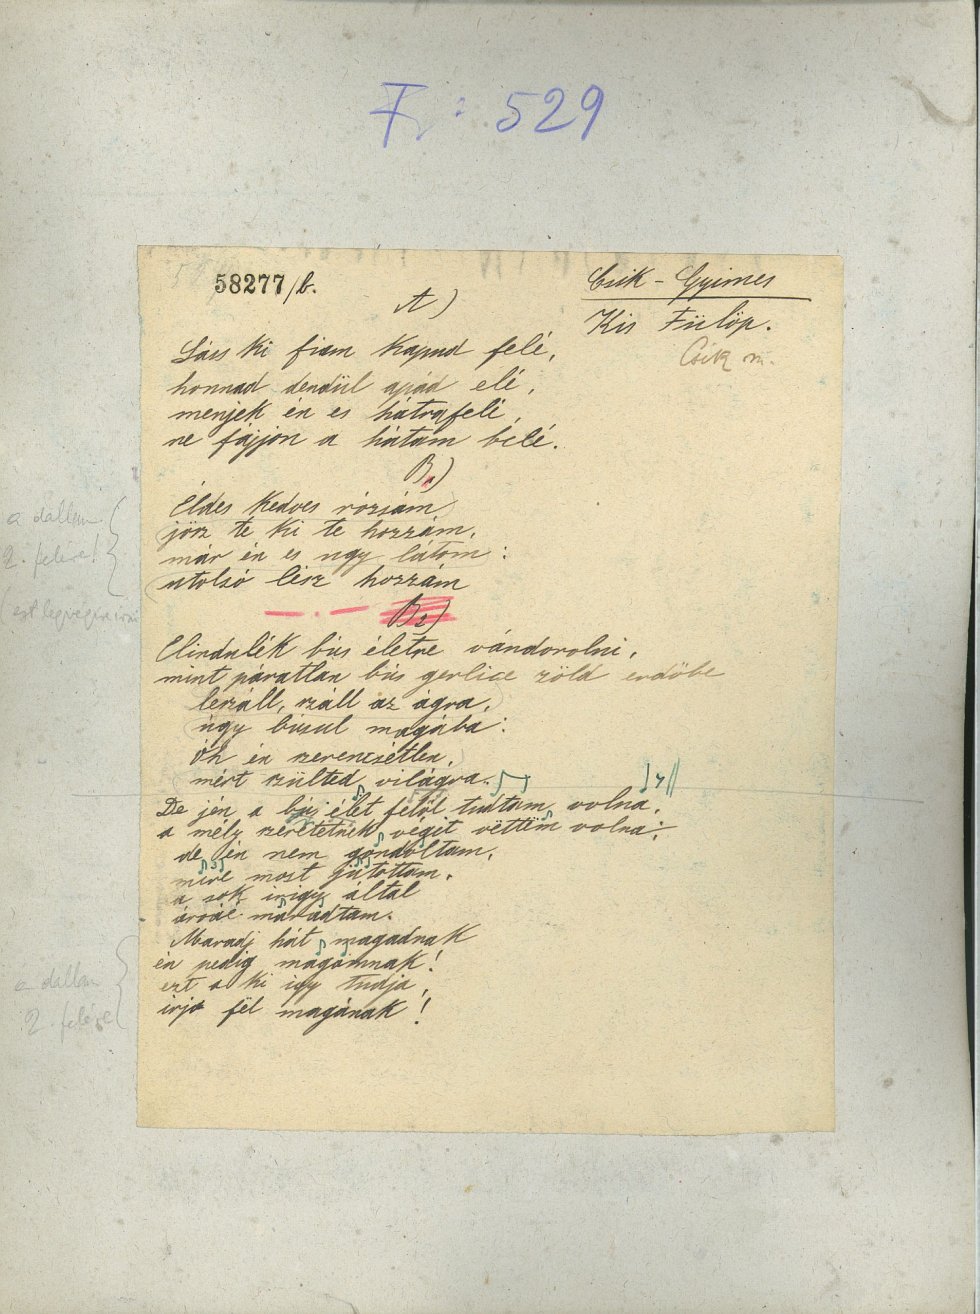 F: 529
58277/b.
Csik - Gyimes
A)
Kis Fülöp.
Csik m.
Láss ki fiam kapud felé,
honnad dendül apád elé,
menjek én es hátrafelé,
ne fájjon a hátam belé.
B1)
Éldes kedves rózsám
jösz te ki te hozzám,
már én es ugy látom:
utolsó lész hozzám
a dallam
2. felére!
ezt legvégén irni
B2)
Elindulék bús életre vándorolni,
mint páratlan bús gerlice zöld erdöbe
leszáll, száll az ágra,
úgy búsul magába:
óh én szerencsétlen,
mért szülted világra.
De jén a bús élet felől tudtam volna,
a mély szeretetnek végét vettem volna:
de én nem gondoltam,
mire most jutottam,
a sok irigy által
árváé maradtam.
Maradj hát magadnak
én pedig magamnak!
ezt a ki igy tudja,
irja fél magának!
a dallam
2. felére